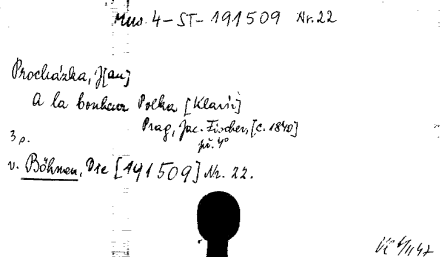 Mus. 4-ST-191509 Nr. 22
Procházka, J[an]
A la bonheur Polka [Klavir]
Prag, Jac. Fischer, [c. 1840]
4°
3 p.
v. Böhmen, Die [191509] Nr. 22.